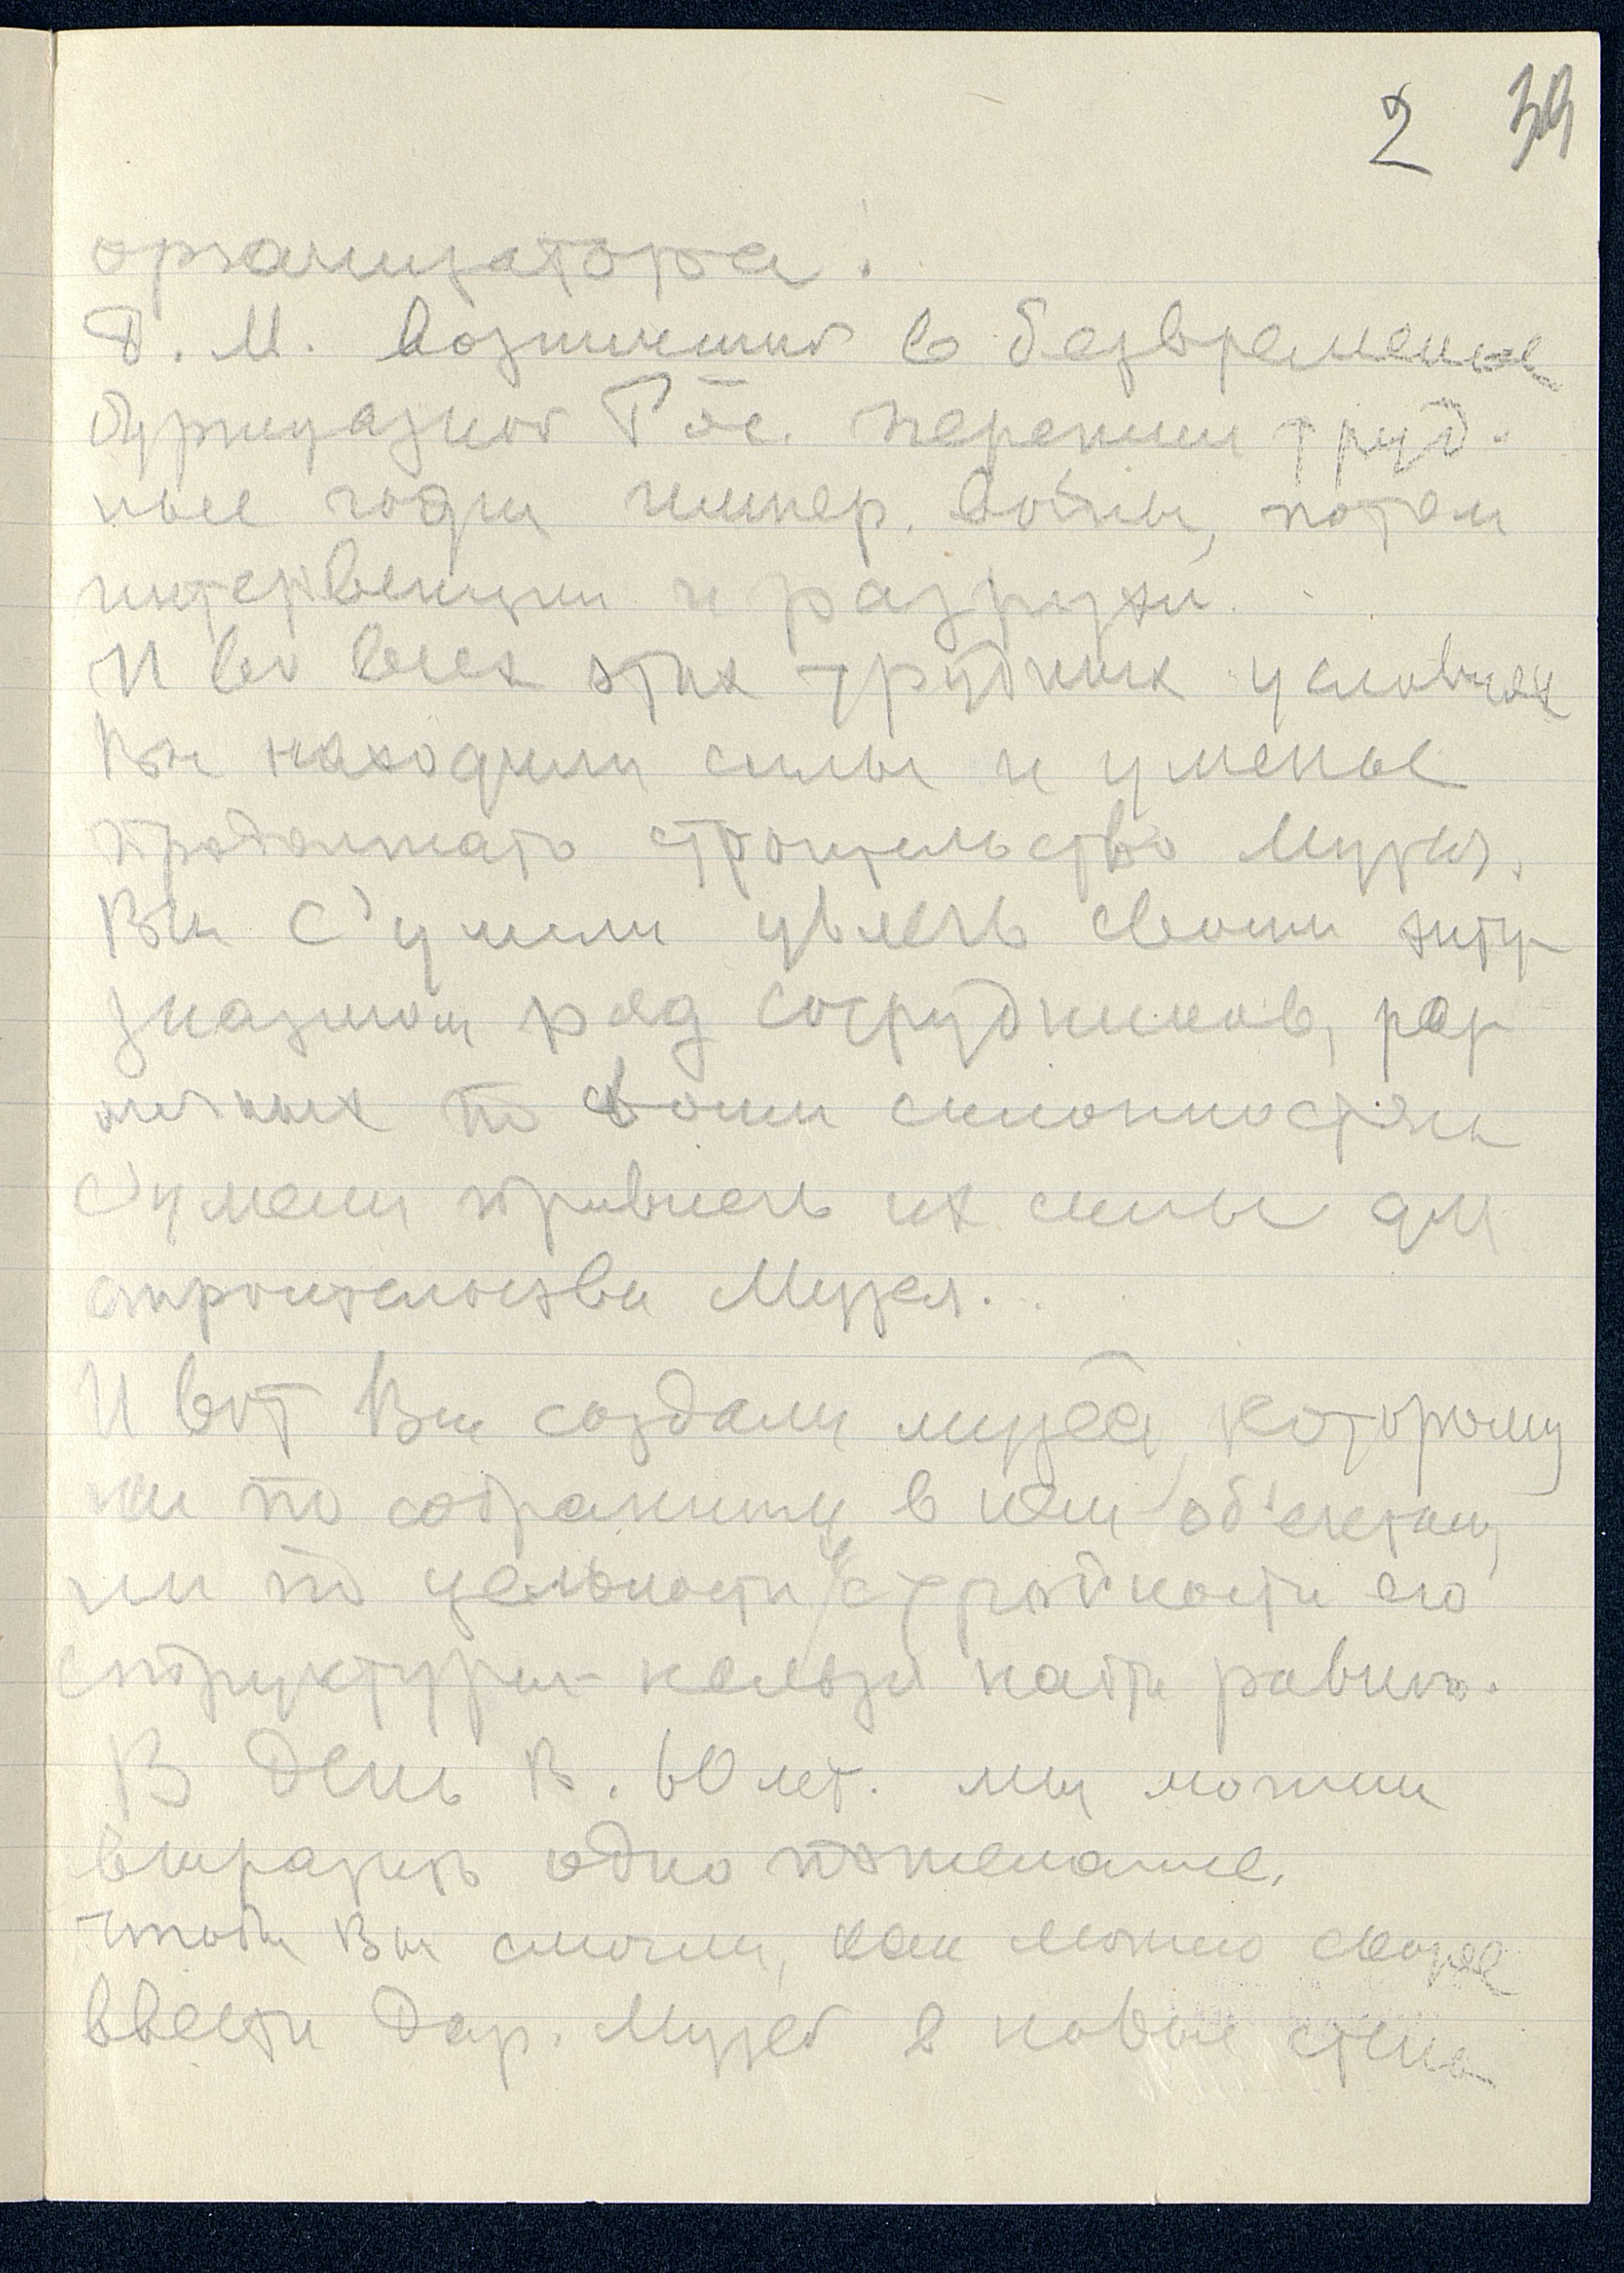 2 39
организатора.
Д. М. возникший в безвременье
буржуазной Рос. пережил труд-
ные годы импер. войны, потом
интервенции и разрухи.
И во всех этих трудных условиях
Вы находили силы и уменье
продолжать строительство Музея.
Вы с'умели увлечь своим энту
зиазмом ряд сотрудников, раз
личных по своим склонностям
с'умели привлечь их силы для
строительства Музея.
И вот Вы создали музей, которому
ни по собранным в нем об'ектам,
ни по цельности и стройности его
структуры нельзя найти равного.
В день В. 60 лет. мы можем
выразить одно пожелание,
чтобы Вы смогли, как можно скорее
ввести Дар. Музей в новые стены